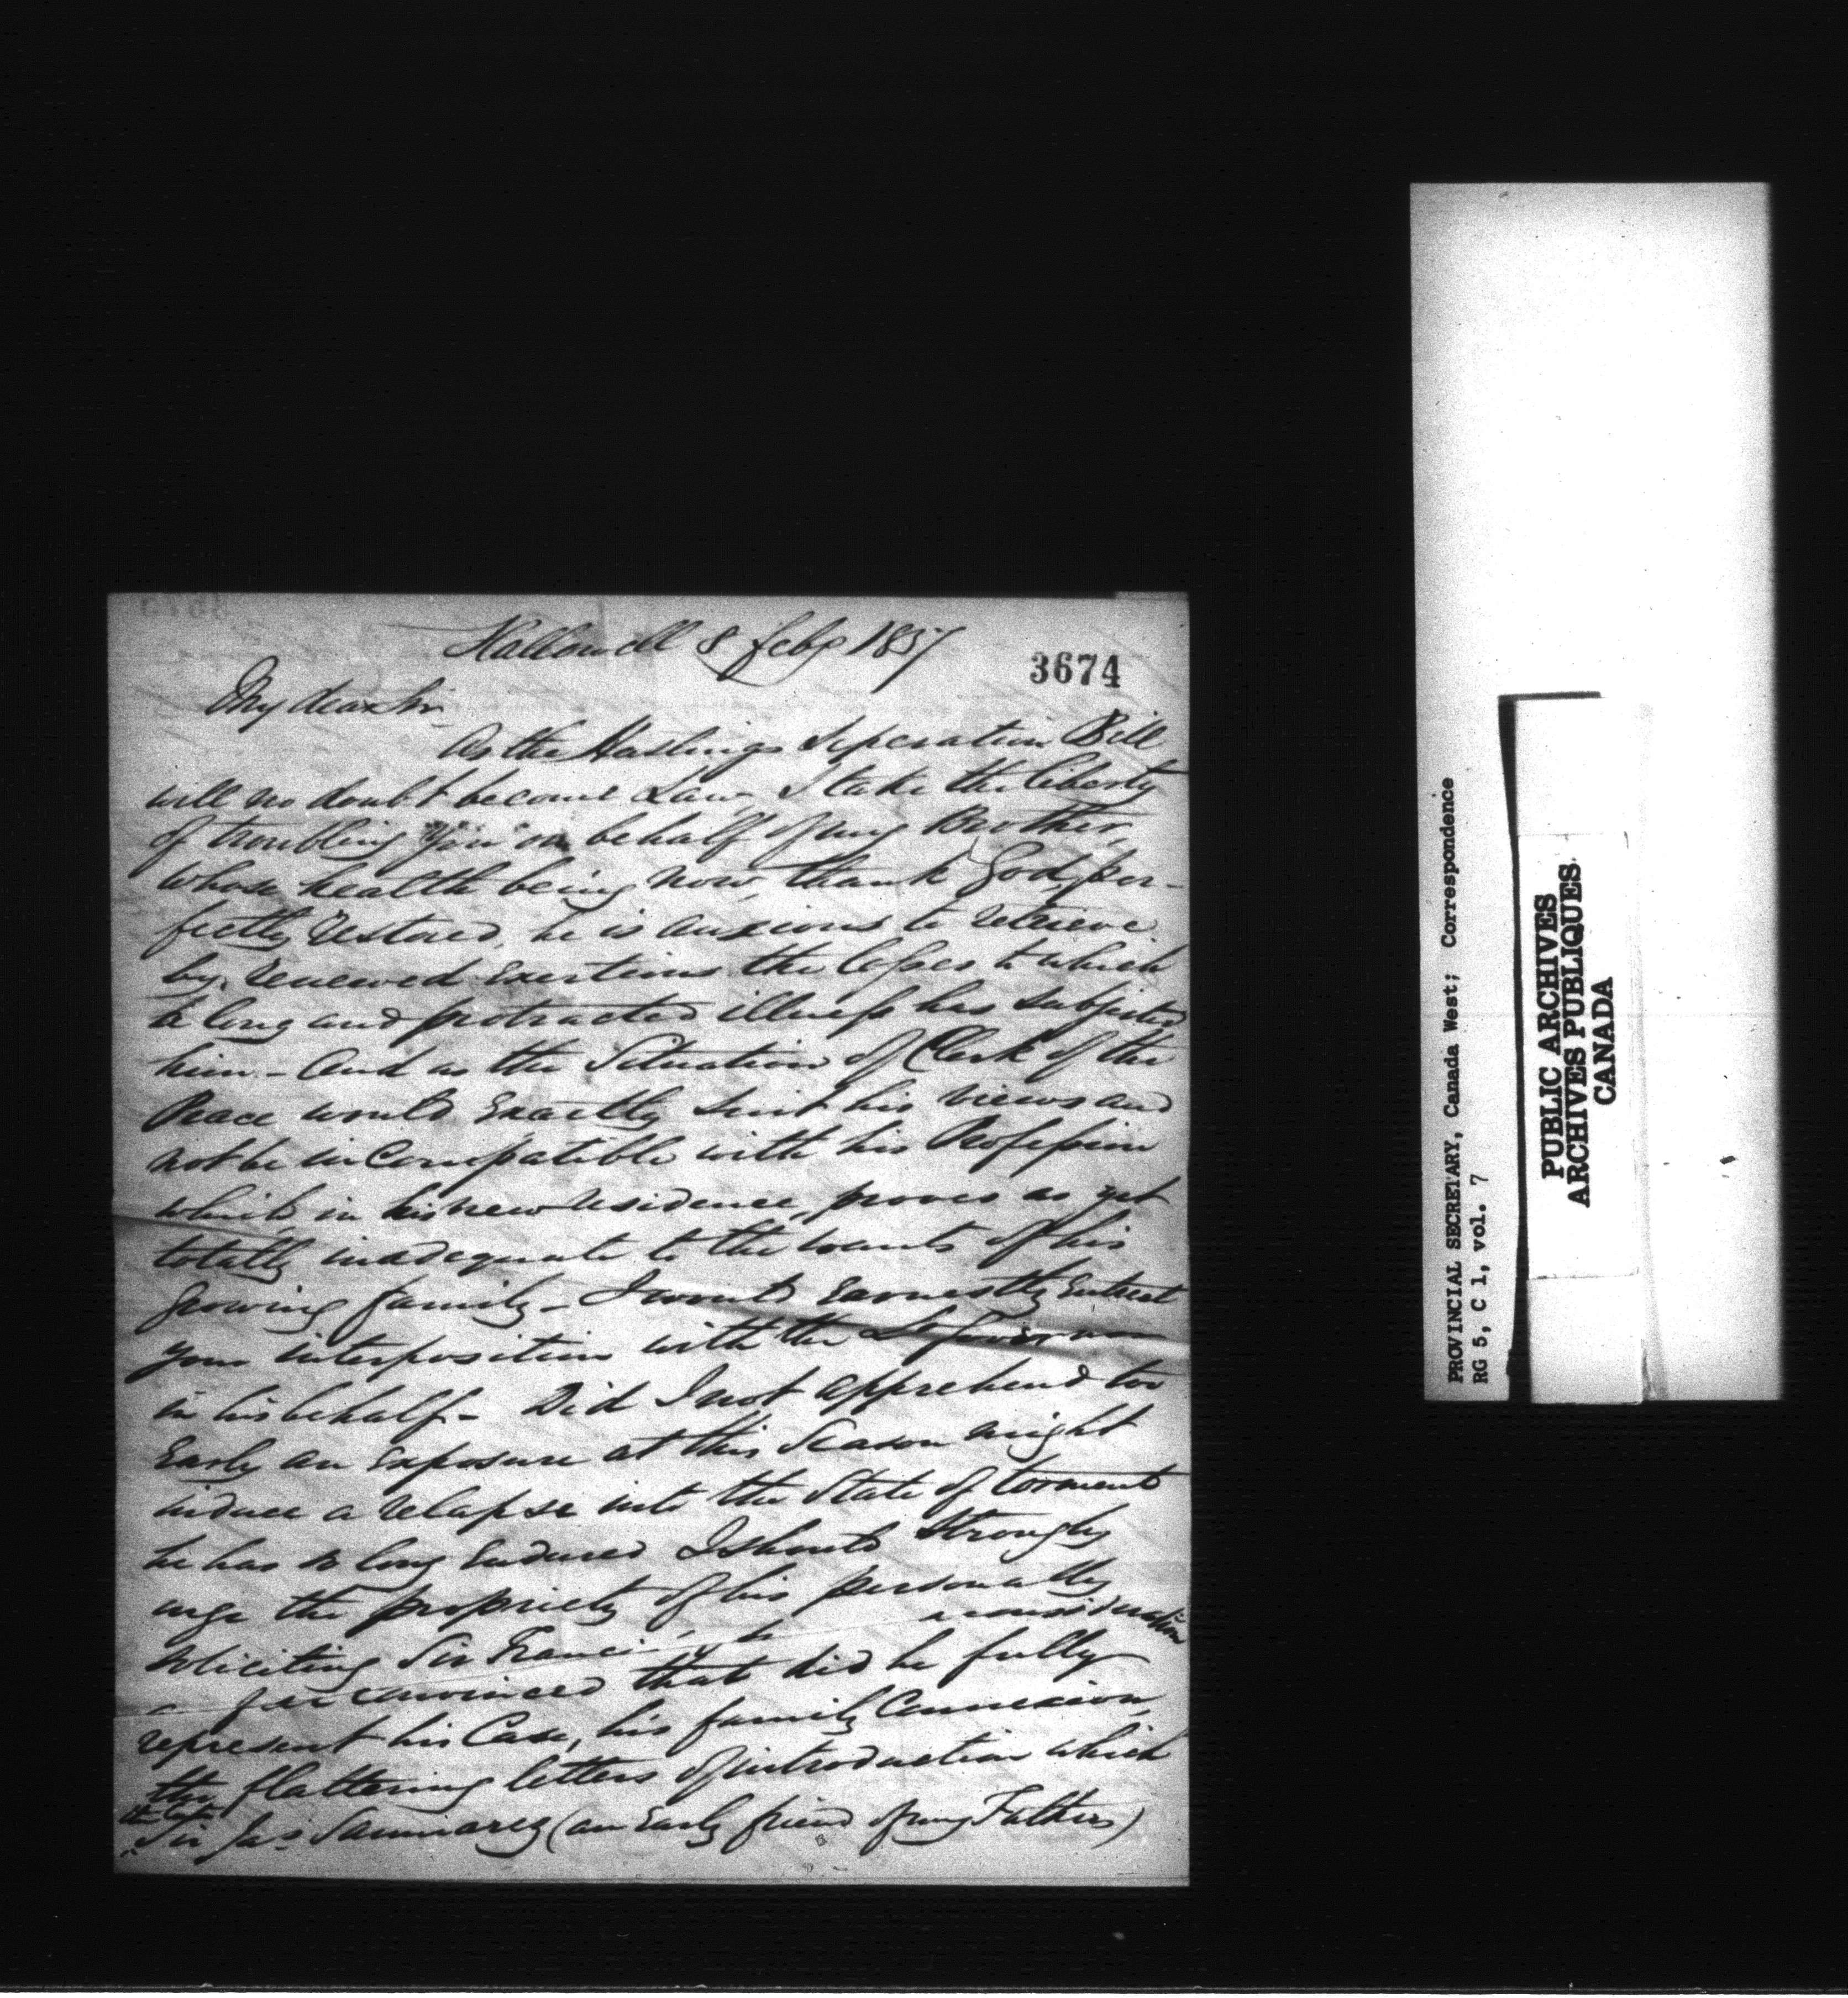 Hallowell 8 feby 1837
3674
My dear Sir
As the Hastings Seperation Bill
will no doubt become Law I take the liberty
of troubling you on behalf of my Brother,
whose health being now, thank God, per-
fectly restored, he is anxious to retrieve
by renewed exertions the losses to which
a long and protracted illness has subjected
him - And as the Situation of Clerk of the
Peace would exactly suit his views and
not be incompatible with his Profession
which in his new residence, proves as yet
totally inadequate to the wants of his
growing family - I would earnestly entreat
your interposition with the Lt Governor
in his behalf - Did I not apprehend too
Early an exposure at this Season might
induce a relapse into the State of torment
he has so long Endured I should strongly
urge the propriety of his personally
soliciting Sir Francis' consideration
convinced that did he fully
represent his Case, his family Connexion,
the flattering letters of introduction which
the late
Sir Jas Saumarez (an Early friend of my Fathers)
PROVINCIAL SECRETARY, Canada West; Correspondence
RG 5, C 1, vol. 7
PUBLIC ARCHIVES
ARCHIVES PUBLIQUES
CANADA